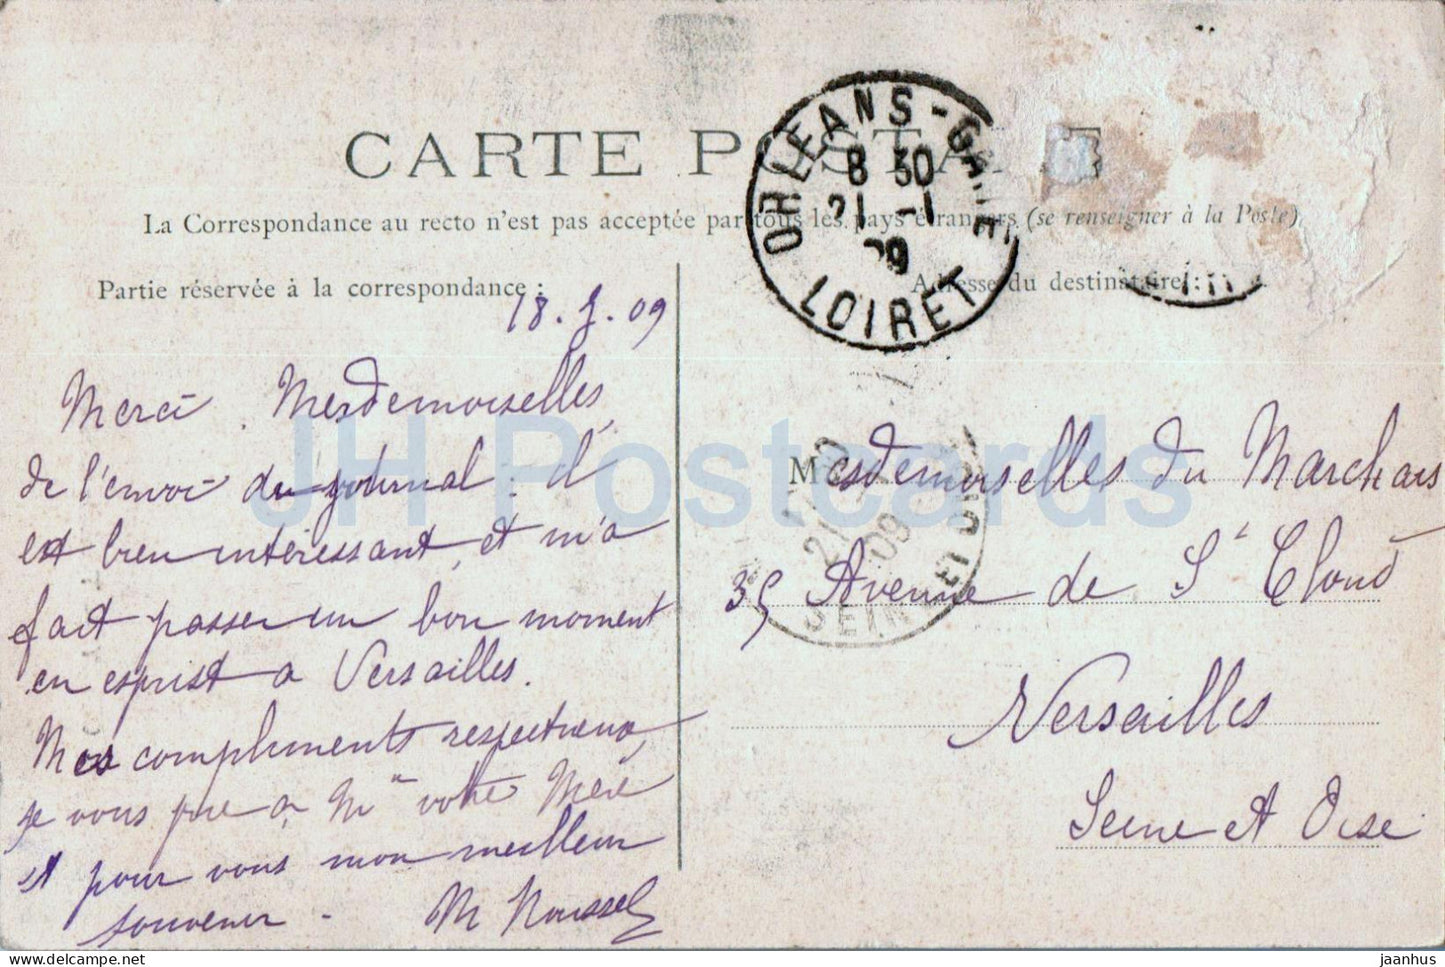 CARTE POSTALE
La Correspondance au recto n'est pas acceptée par tous les pays étrangers (se renseigner à la Poste)
Partie réservée à la correspondance :
Adresse du destinataire :
ORLEANS-GARE
8 30
21 -1
09
LOIRET
18.1.09
Merci Mesdemoiselles,
de l'envoi du journal : il
est bien intéressant, et m'a
fait passer un bon moment
en esprit à Versailles.
Mes compliments respectueux,
je vous prie a Mme votre Mère
et pour vous mon meilleur
souvenir.
M Roussel
Mesdemoiselles du Marchais
35 Avenue de St Cloud
Versailles
Seine et Oise
21
09
SEINE ET OISE
JH Postcards
jaanhus